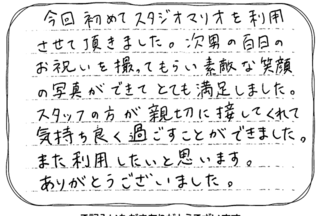 今回初めてスタジオマリオを利用
させて頂きました。次男の百日の
お祝いを撮ってもらい素敵な笑顔
の写真ができてとても満足しました。
スタッフの方が親切に接してくれて
気持ち良く過ごすことができました。
また利用したいと思います。
ありがとうございました。